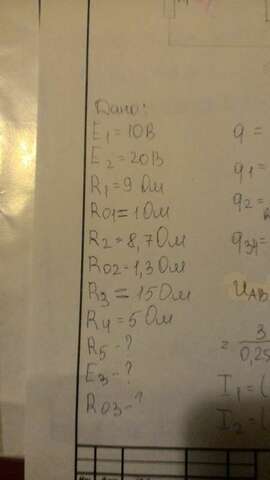 Дано:
E1=10В
E2=20В
R1=9 Ом
R01=1 Ом
R2=8,7 Ом
R02=1,3 Ом
R3=15 Ом
R4=5 Ом
R5-?
E3-?
R03-?
g=
g1=
g2=
g34=
UAB
= 3
0,25
I1=(
I2=(